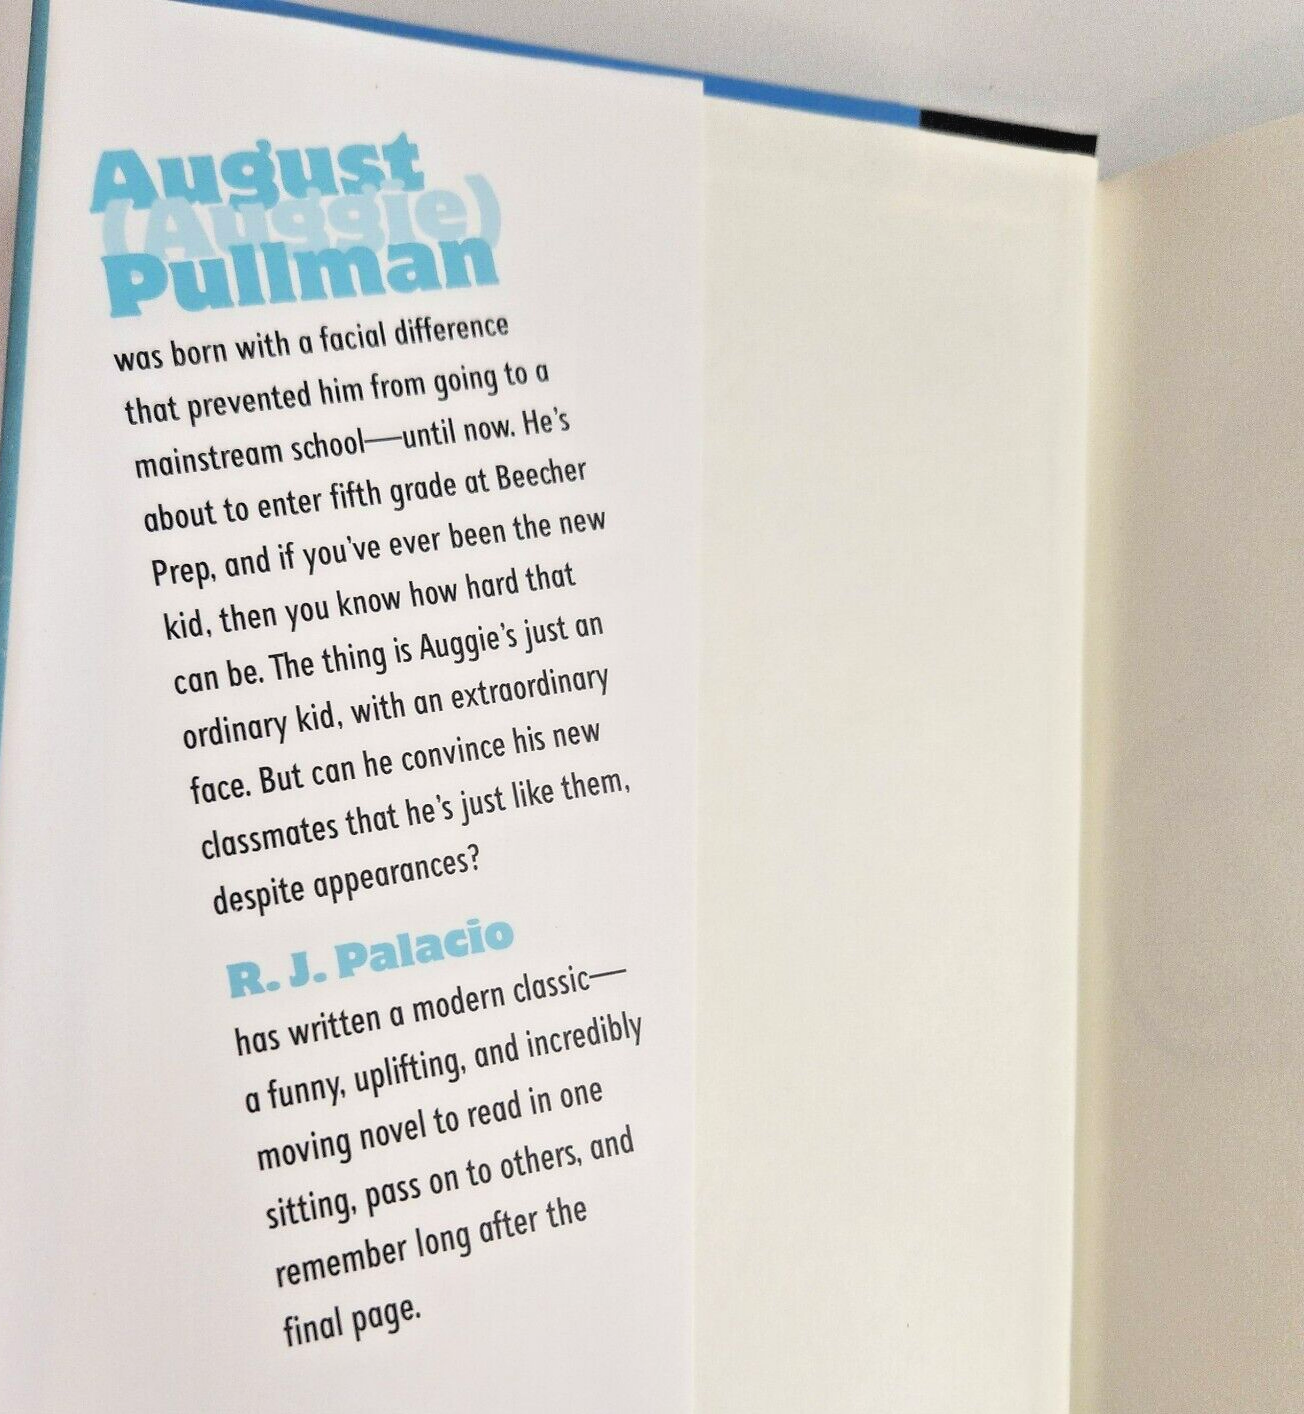 August
(Auggie)
Pullman
was born with a facial difference
that prevented him from going to a
mainstream school—until now. He's
about to enter fifth grade at Beecher
Prep, and if you've ever been the new
kid, then you know how hard that
can be. The thing is Auggie's just an
ordinary kid, with an extraordinary
face. But can he convince his new
classmates that he's just like them,
despite appearances?
R. J. Palacio
has written a modern classic—
a funny, uplifting, and incredibly
moving novel to read in one
sitting, pass on to others, and
remember long after the
final page.